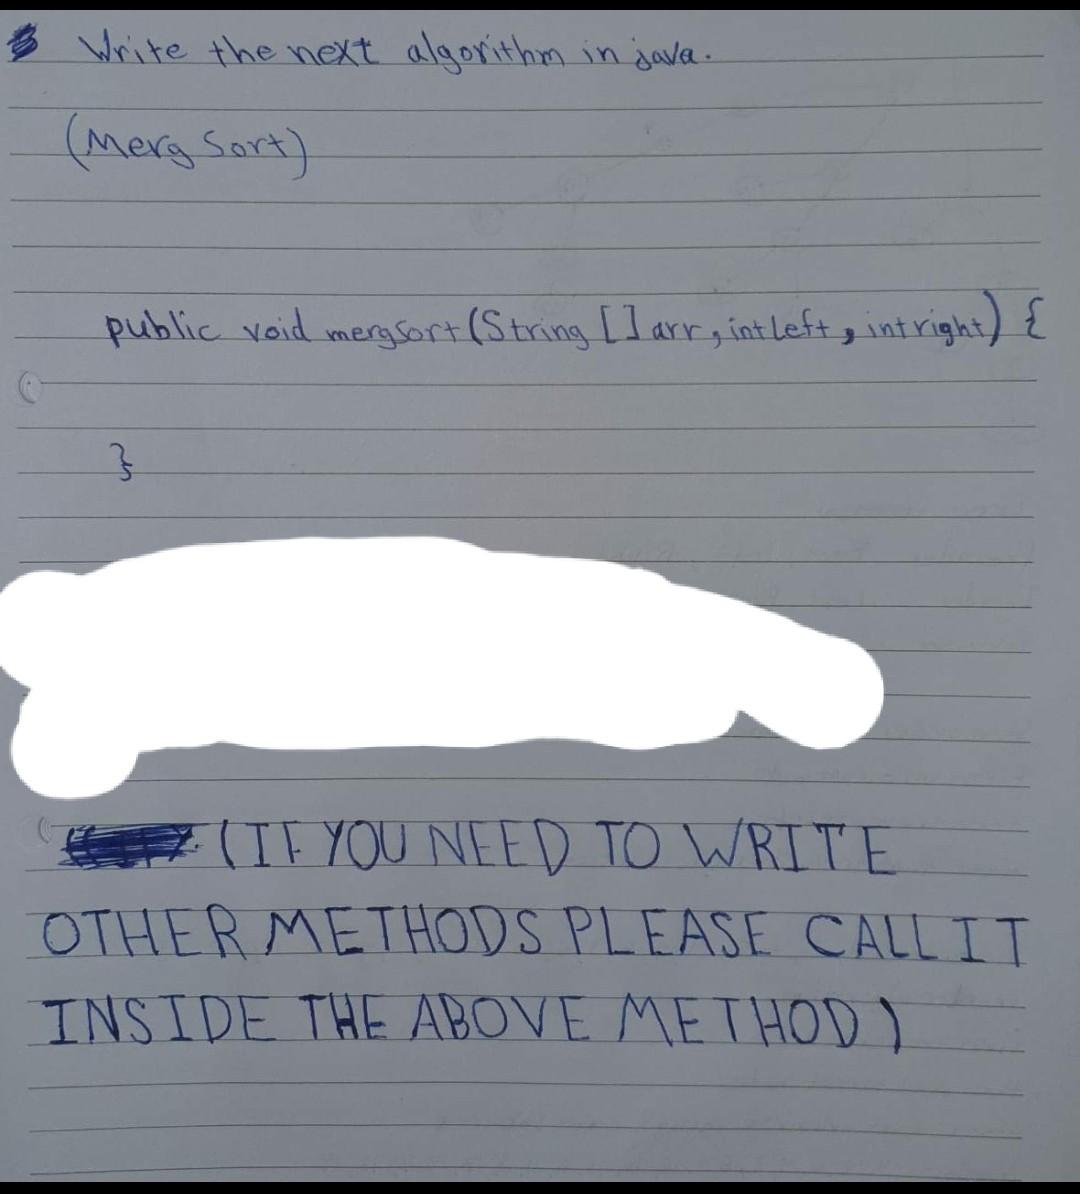 Write the next algorithm in java.
(Merg Sort)
public void mergsort (String [] arr, int left, int right) {
}
(IF YOU NEED TO WRITE
OTHER METHODS PLEASE CALL IT
INSIDE THE ABOVE METHOD)